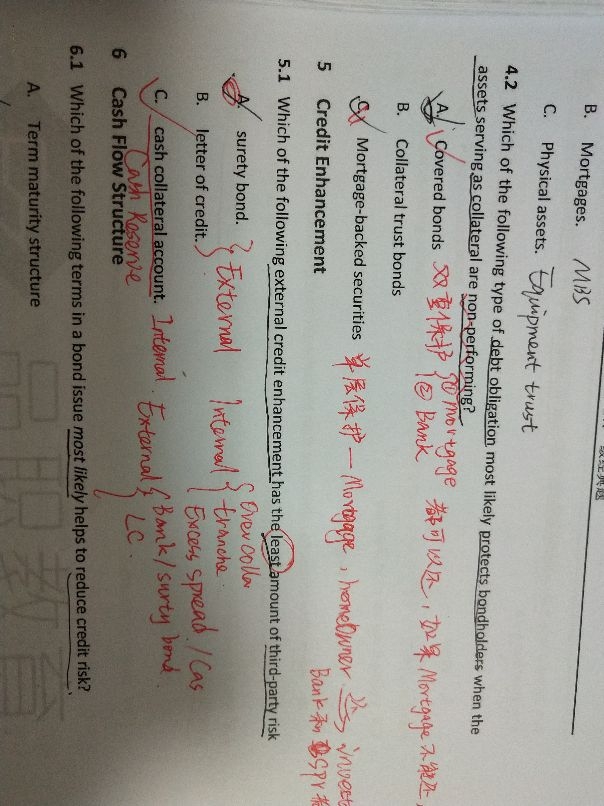 B. Mortgages. MBS
C. Physical assets. Equipment trust
4.2 Which of the following type of debt obligation most likely protects bondholders when the
assets serving as collateral are non-performing?
A. Covered bonds 双重保护 { ① mortgage ② Bank 都可以还，如果 Mortgage 不能还，
B. Collateral trust bonds
C. Mortgage-backed securities 单层保护 — Mortgage, homeowner 还
Bank 和 SPV
5 Credit Enhancement
5.1 Which of the following external credit enhancement has the least amount of third-party risk
A. surety bond.
B. letter of credit. } External Internal { Over colla tranche Excess spread / Cas
C. cash collateral account. Internal. External { Bank / surty bond. LC.
Cash Reserve
6 Cash Flow Structure
6.1 Which of the following terms in a bond issue most likely helps to reduce credit risk?
A. Term maturity structure
品职教育